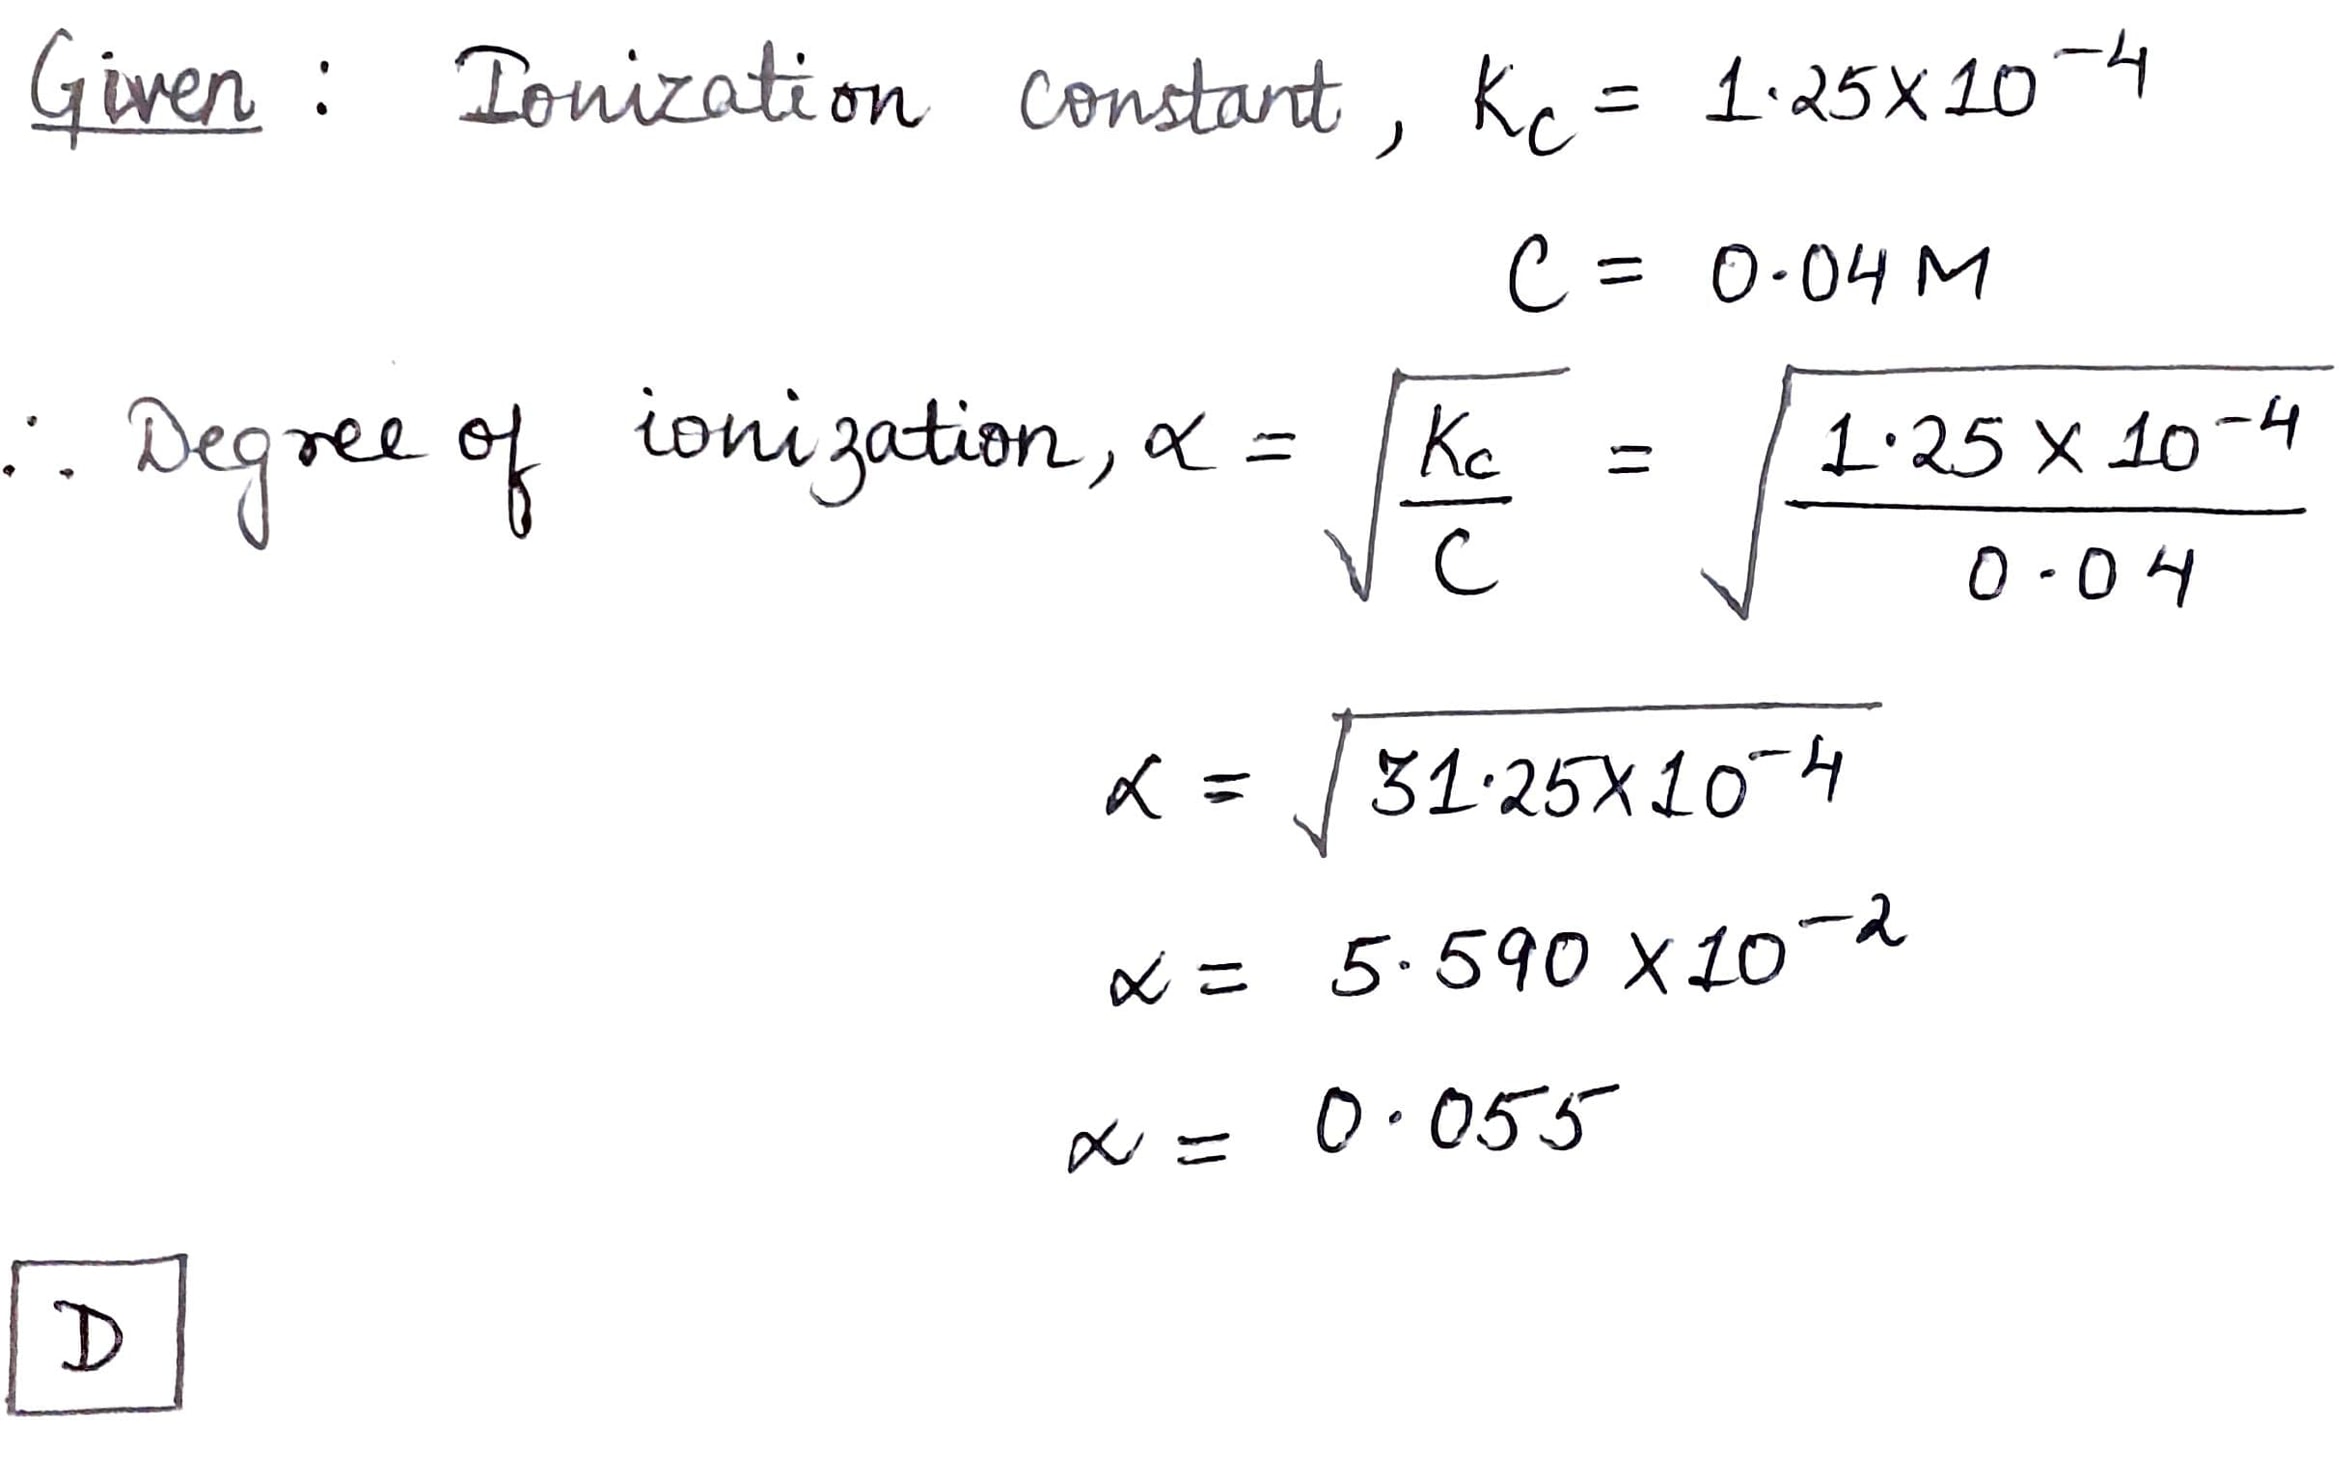 Given : Ionization constant, Kc = 1.25×10⁻⁴
C = 0.04 M
∴ Degree of ionization, α = √(Kc/C) = √(1.25 × 10⁻⁴/0.04)
α = √(31.25×10⁻⁴)
α = 5.590 × 10⁻²
α = 0.055
D